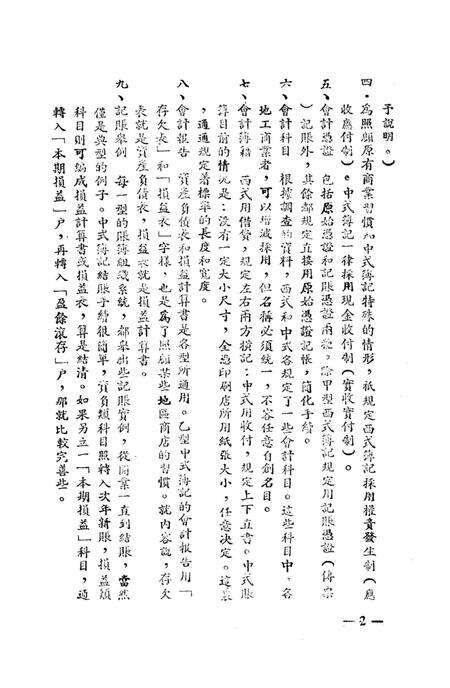 予說明。）
四、為照顧原有商業習慣和中式簿記特殊的情形，祇規定西式簿記採用權責發生制（應
收應付制）。中式簿記一律採用現金收付制（實收實付制）。
五、會計憑證　包括原始憑證和記賬憑證兩種，除甲型西式簿記規定用記賬憑證（傳票
）記賬外，其餘都規定直接用原始憑證記帳，簡化手續。
六、會計科目　根據調查的資料，西式和中式各規定了一些會計科目。這些科目中，各
地工商業者，可以增減採用，但名稱必須統一，不容任意自創名目。
七、會計簿籍　西式用借貸，規定左右兩方橫記；中式用收付，規定上下直書。中式賬
簿目前的情況是：沒有一定大小尺寸，全憑印刷店所用紙張大小，任意決定。這裏
，通通規定着標準的長度和寬度。
八、會計報告　資產負債表和損益計算書是各型所通用。乙型中式簿記的會計報告用「
存欠表」和「損益表」字樣，也是為了照顧某些地區商店的習慣。就內容說，存欠
表就是資產負債表，損益表就是損益計算書。
九、記賬舉例　每一型的賬簿組織系統，都舉出些記賬實例，從開業一直到結賬，當然
僅是典型的例子。中式簿記結賬手續很簡單，資負類科目照轉入次年新賬，損益類
科目則可編成損益計算書或損益表，算是結清。如果另立一「本期損益」科目，通
轉入「本期損益」戶，再轉入「盈餘滾存」戶，那就比較完善些。
—2—